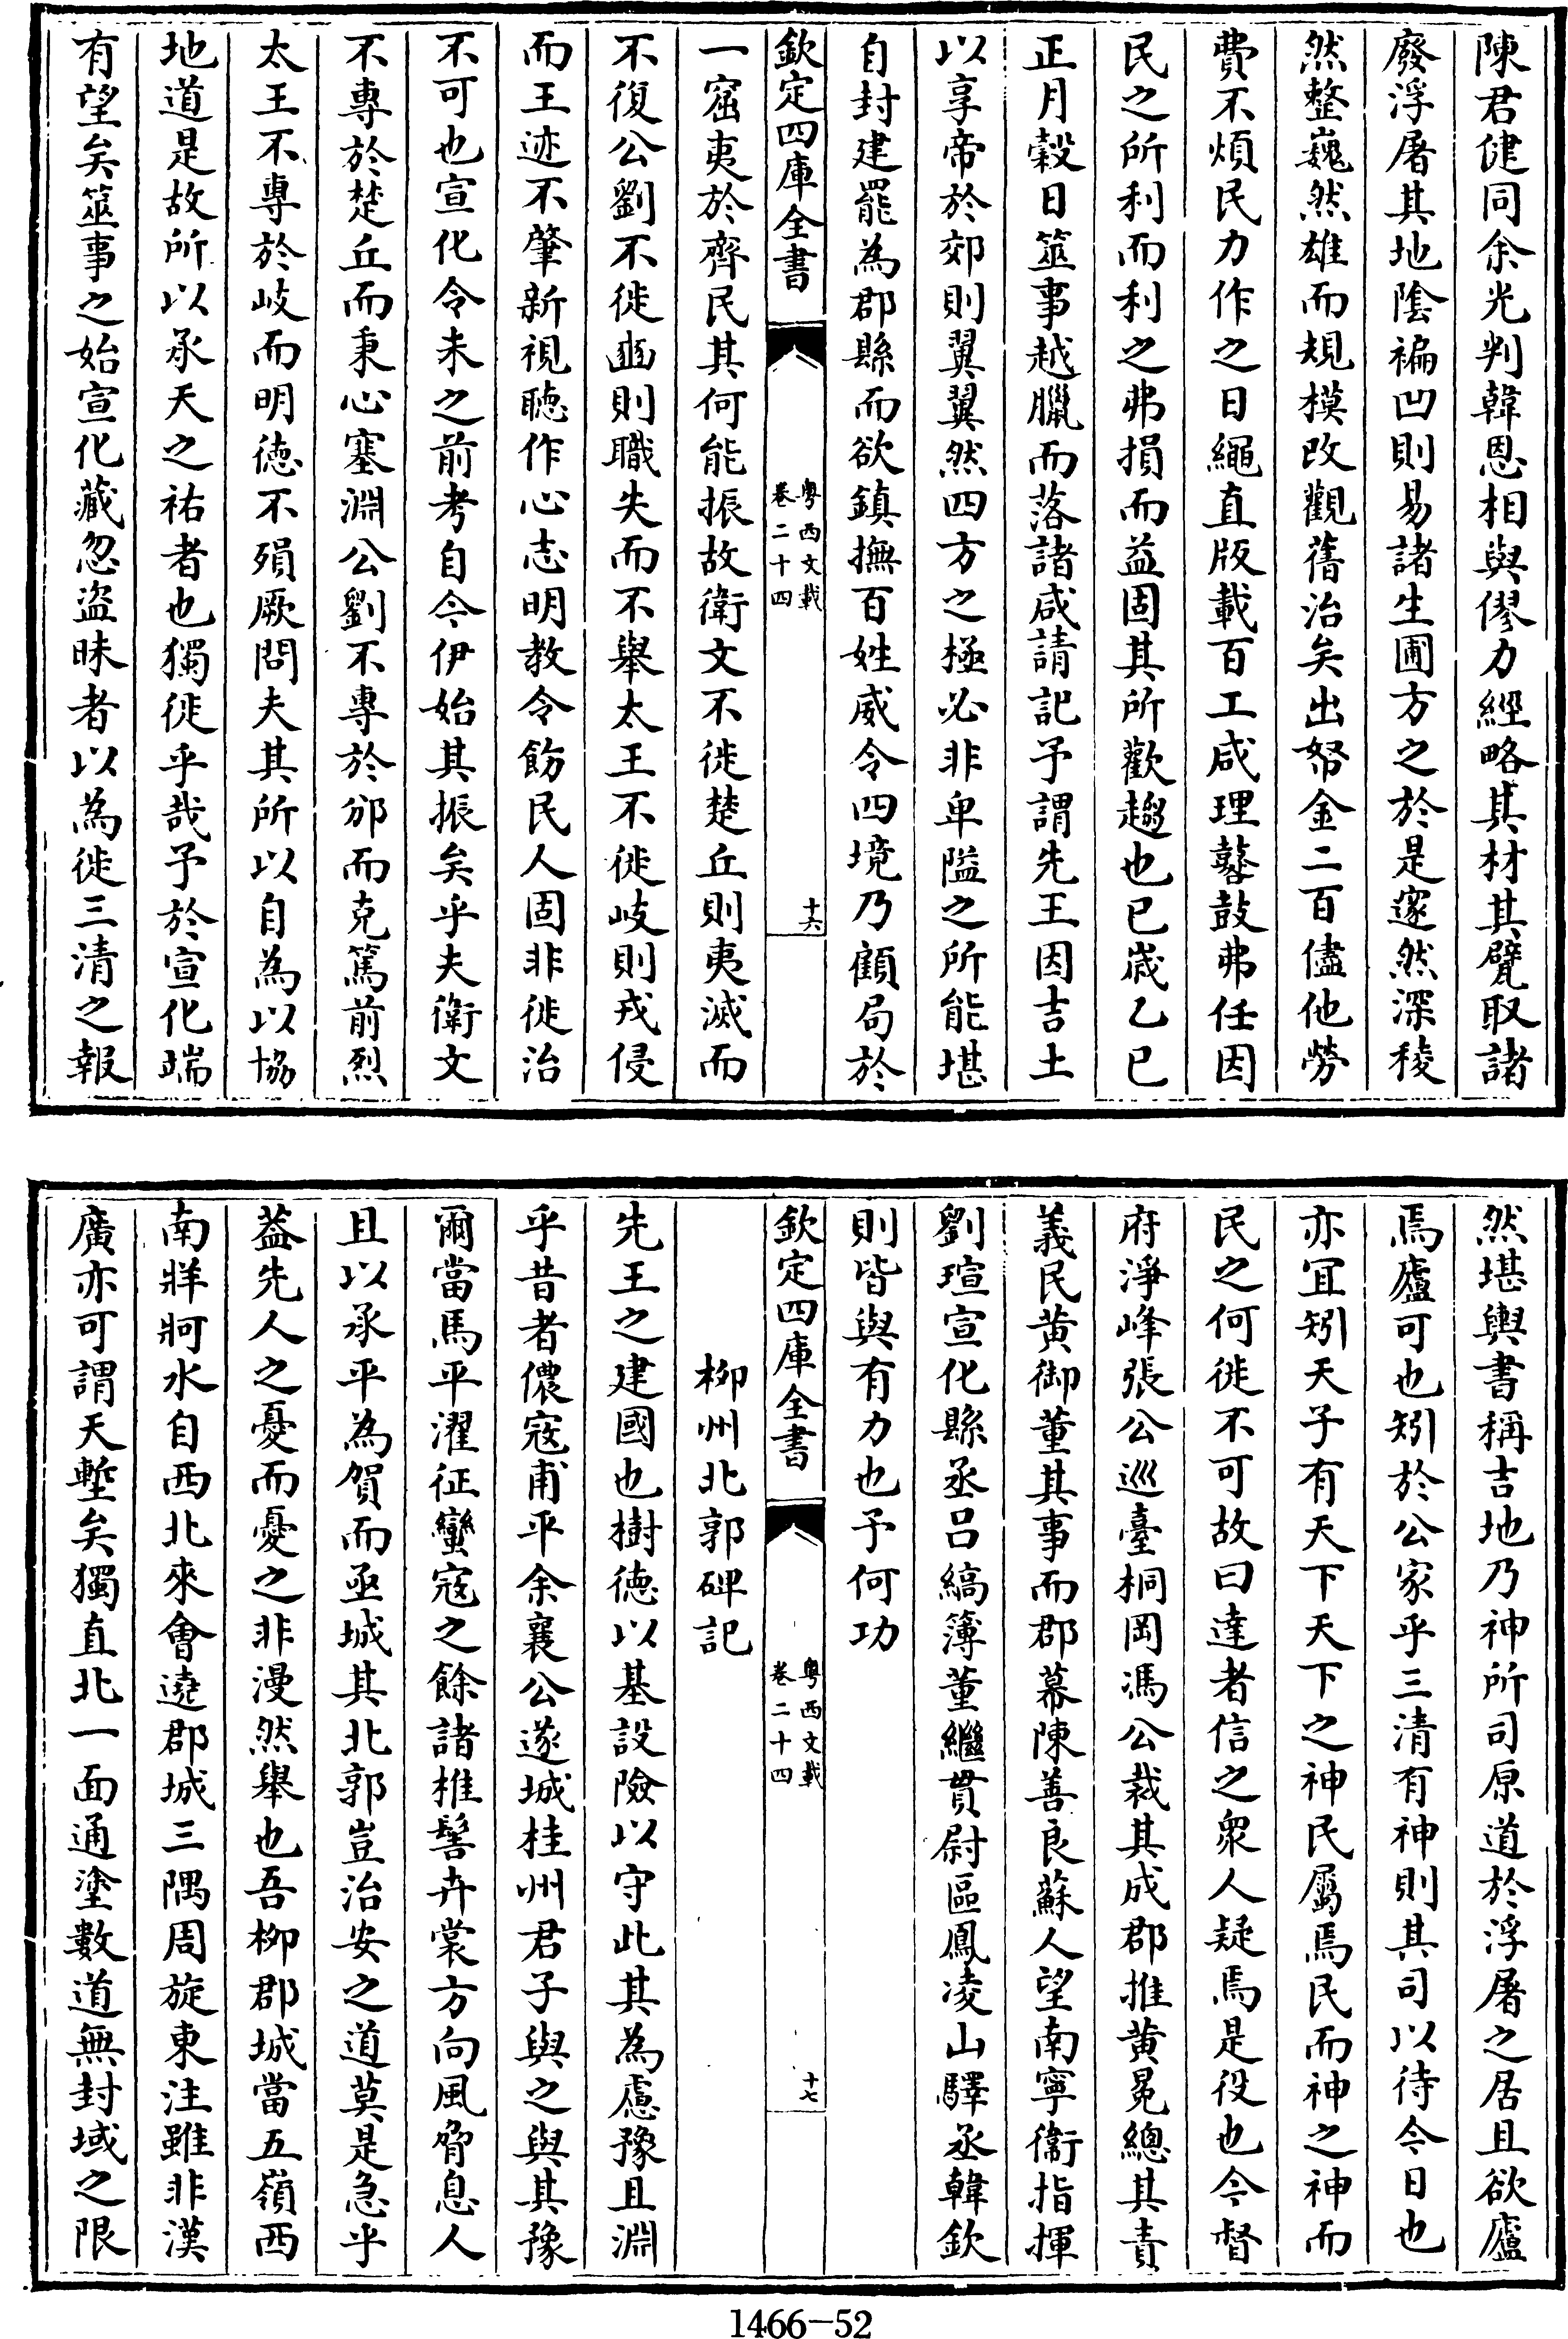 陳君健同余光判韓恩相與僇力經略其材其甓取諸
廢浮屠其地陰褊凹則易諸生圃方之於是邃然深稜
然整巍然雄而規模改觀舊治矣出帑金二百儘他勞
費不煩民力作之日繩直版載百工咸理鼛鼓弗任因
民之所利而利之弗損而益固其所歡趨也已嵗乙巳
正月穀日筮事越臘而落諸咸請記予謂先王因吉土
以享帝於郊則翼翼然四方之極必非卑隘之所能堪
自封建罷為郡縣而欲鎮撫百姓威令四境乃顧局於
欽定四庫全書
粤西文載
卷二十四
十六
一窟夷於齊民其何能振故衛文不徙楚丘則夷滅而
不復公劉不徙豳則職失而不舉太王不徙岐則戎侵
而王迹不肇新視聽作心志明教令飭民人固非徙治
不可也宣化令未之前考自今伊始其振矣乎夫衛文
不專於楚丘而秉心塞淵公劉不專於邠而克篤前烈
太王不專於岐而明徳不殞厥問夫其所以自為以協
地道是故所以承天之祐者也獨徙乎哉予於宣化端
有望矣筮事之始宣化藏忽盜昧者以為徙三清之報
然堪輿書稱吉地乃神所司原道於浮屠之居且欲廬
焉廬可也矧於公家乎三清有神則其司以待今日也
亦宜矧天子有天下天下之神民屬焉民而神之神而
民之何徙不可故曰達者信之衆人疑焉是役也今督
府淨峰張公巡臺桐岡馮公裁其成郡推黄冕總其責
義民黄御董其事而郡幕陳善良蘇人望南寧衛指揮
劉瑄宣化縣丞吕縞簿董繼貫尉區鳳凌山驛丞韓欽
則皆與有力也予何功
欽定四庫全書
粤西文載
卷二十四
十七
柳州北郭碑記
先王之建國也樹徳以基設險以守此其為慮豫且淵
乎昔者儂宼甫平余襄公遂城桂州君子與之與其豫
爾當馬平濯征蠻寇之餘諸椎髻卉裳方向風脅息人
且以承平為賀而亟城其北郭豈治安之道莫是急乎
葢先人之憂而憂之非漫然舉也吾柳郡城當五嶺西
南牂牁水自西北來會遶郡城三隅周旋東注雖非漢
廣亦可謂天塹矣獨直北一面通塗數道無封域之限
1466-52